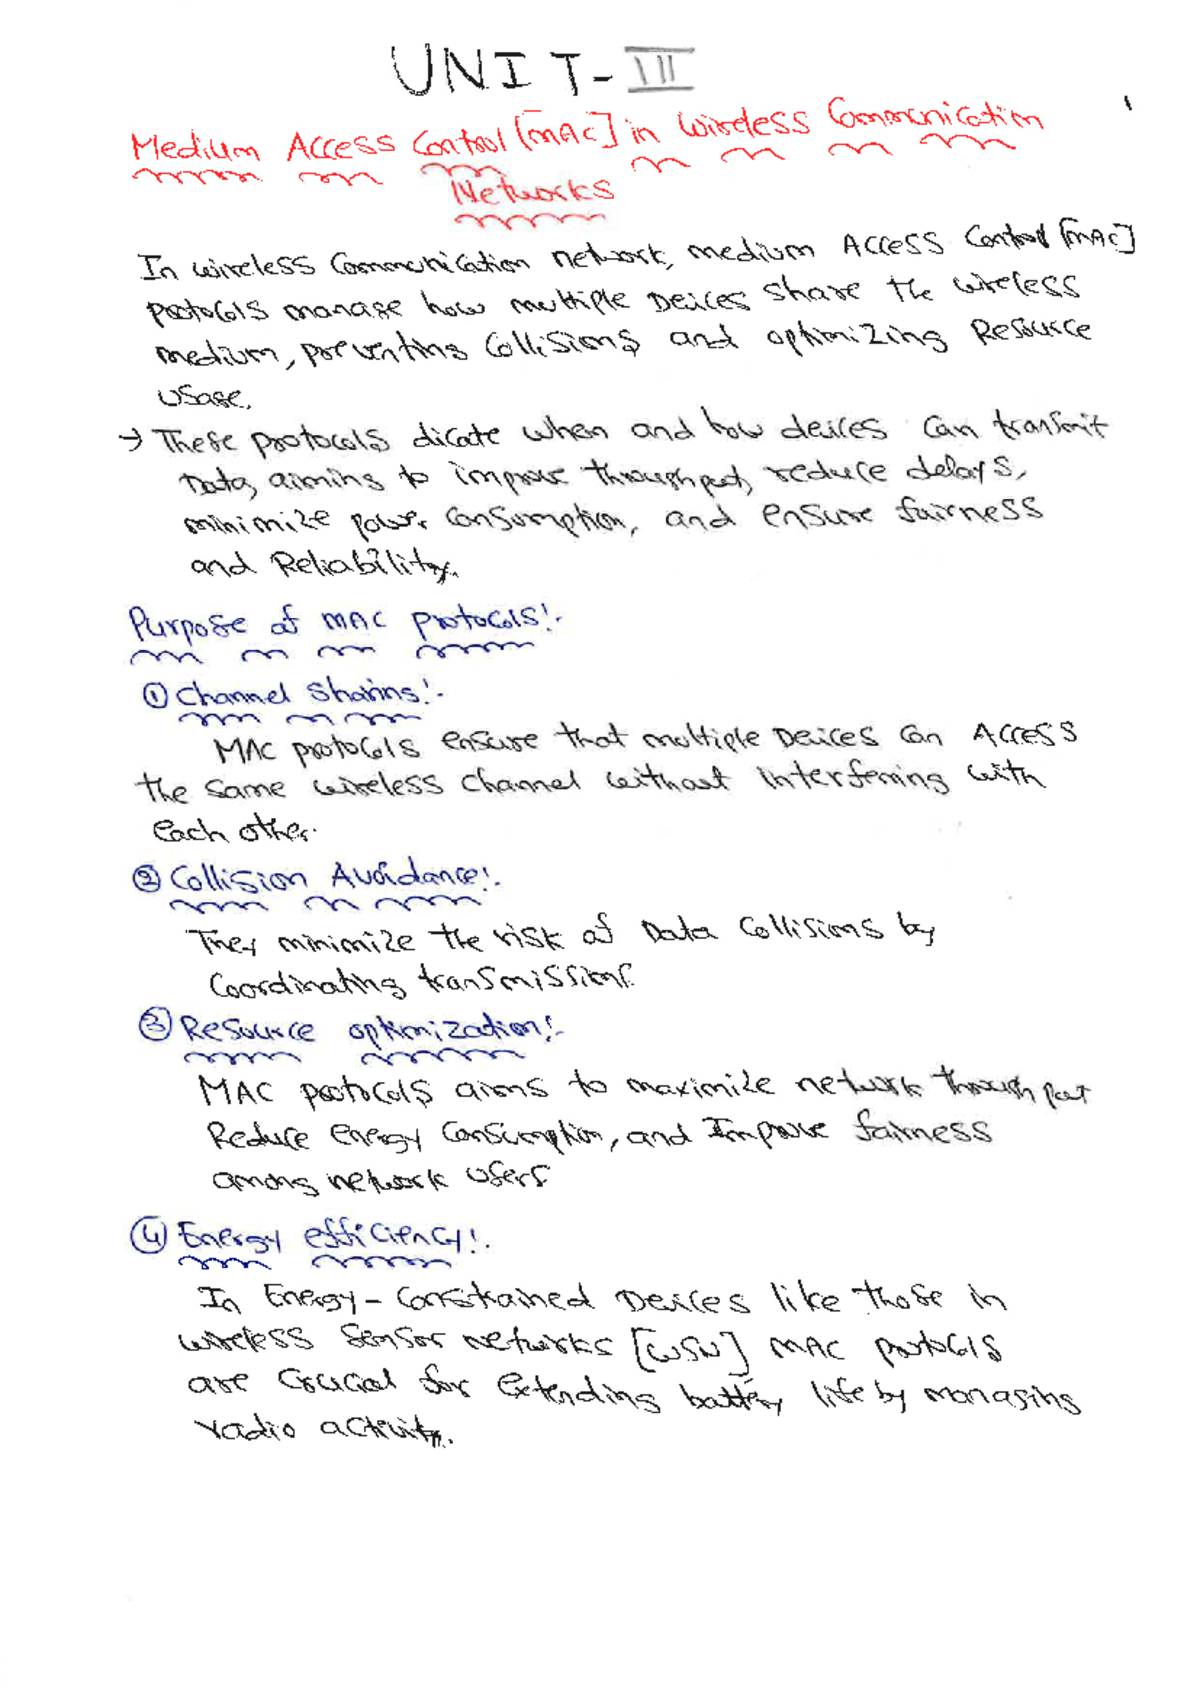 UNIT-III
1
Medium Access Control [MAC] in Wireless Communication
Networks
In wireless Communication network, medium Access Control [MAC]
protocols manage how multiple Devices share the wireless
medium, preventing Collisions and optimizing Resource
usage.
→ These protocols dicate when and how devices can transmit
Data, aiming to improve throughput, reduce delays,
minimize power consumption, and ensure fairness
and Reliability.
Purpose of MAC protocols:-
① Channel sharing:-
MAC protocols ensure that multiple Devices can Access
the same wireless channel without interfering with
each other.
② Collision Avoidance:-
They minimize the risk of Data Collisions by
Coordinating transmissions.
③ Resource optimization:-
MAC protocols aims to maximize network throughput
Reduce energy consumption, and Improve fairness
among network users
④ Energy efficiency:-
In Energy-Constrained Devices like those in
wireless sensor networks [WSN] MAC protocols
are crucial for extending battery life by managing
radio activity.